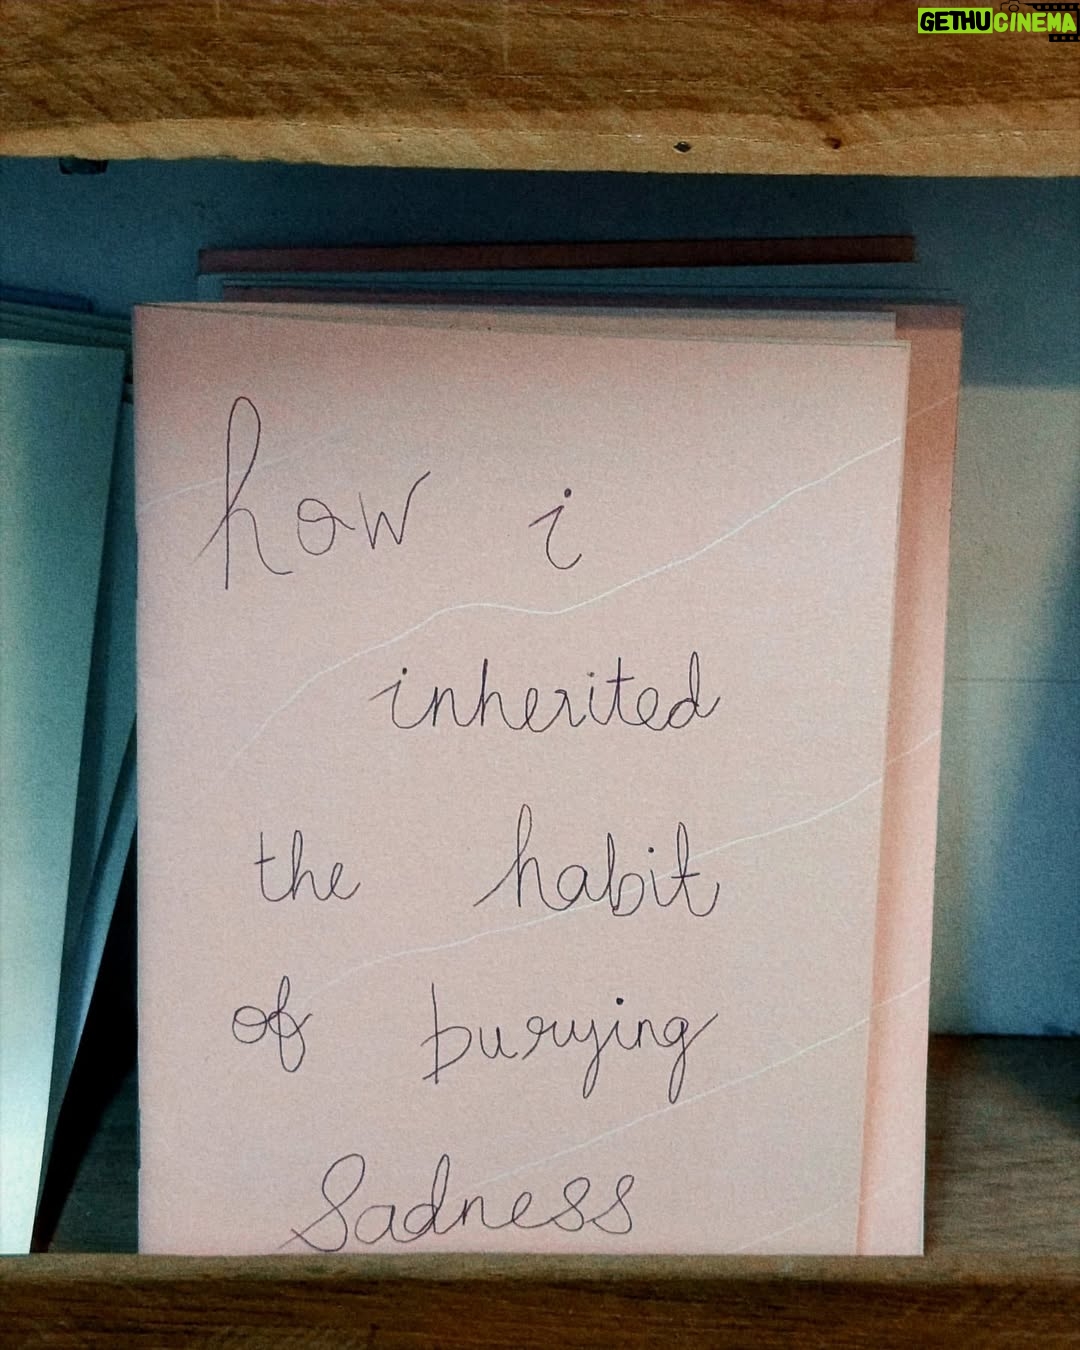 GETHUCINEMA
how i
inherited
the habit
of burying
Sadness